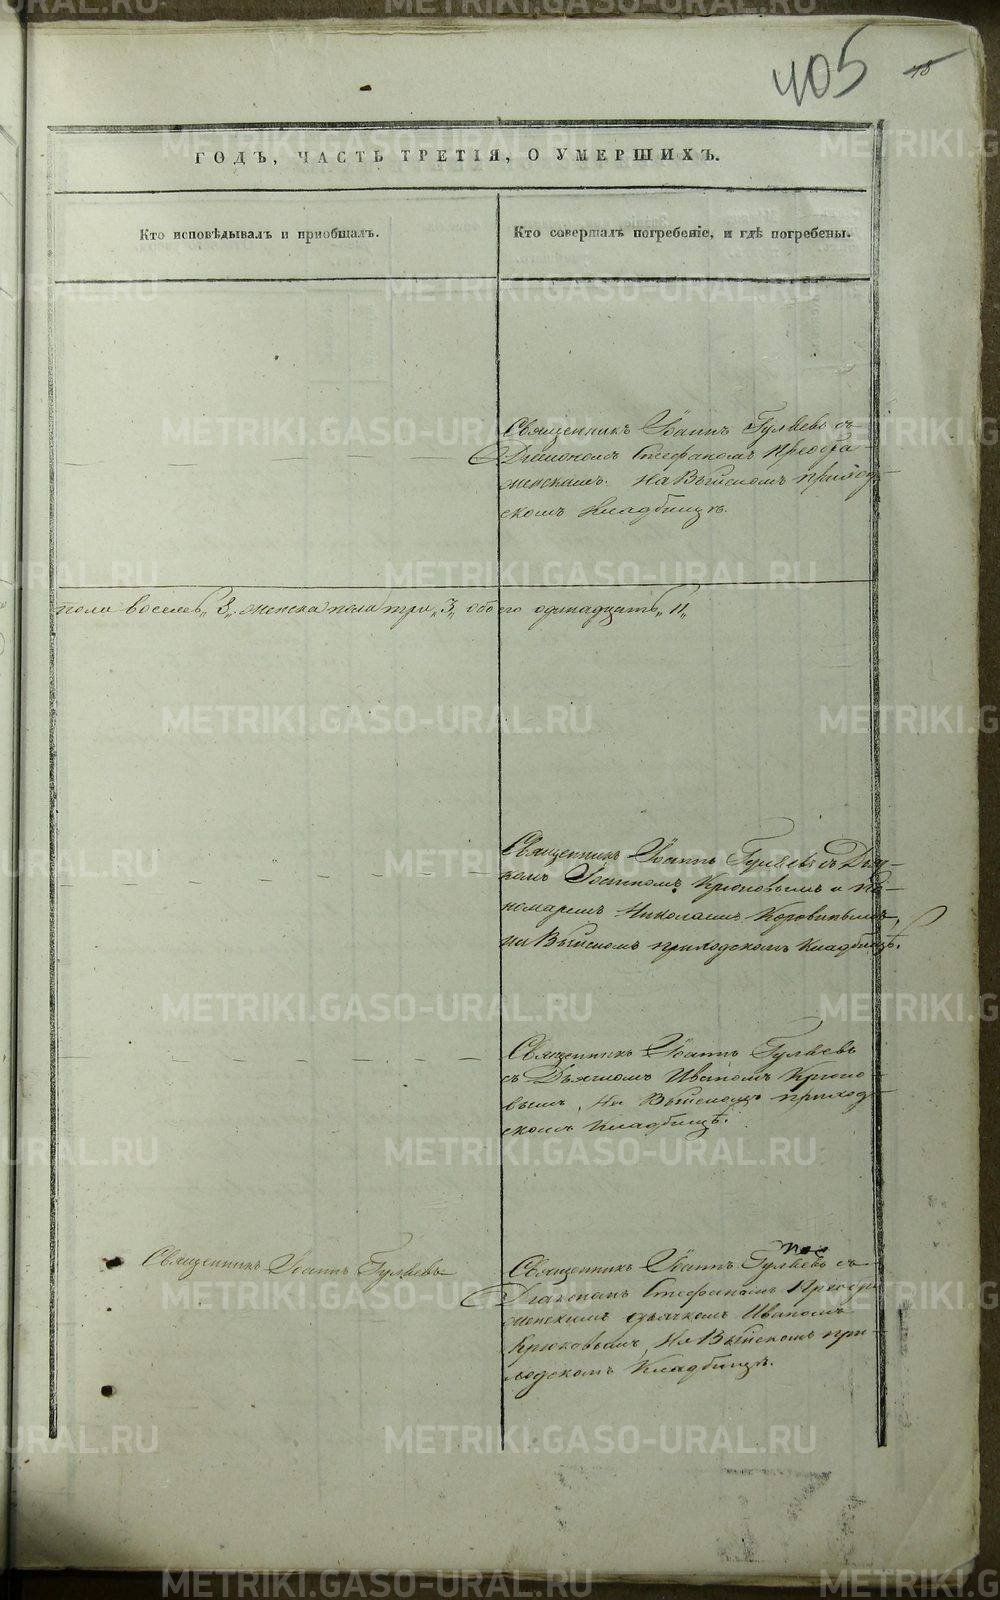 405
48
ГОДЪ, ЧАСТЬ ТРЕТІЯ, О УМЕРШИХЪ.
Кто исповѣдывалъ и приобщалъ.
Кто совершалъ погребеніе, и гдѣ погребены.
Священникъ Іоаннъ Гуляевъ съ
Діакономъ Стефаномъ Преобра
женскимъ. на Выйскомъ приход
скомъ кладбищѣ.
пола восемь „8„ женска пола три „3„ обоего одинадцать „11„
Священникъ Іоаннъ Гуляевъ съ Дьяч-
комъ Іоанномъ Крюковымъ и По-
номаремъ Николаемъ Коровинымъ,
на Выйскомъ приходскомъ кладбищѣ.
Священникъ Іоаннъ Гуляевъ
съ Дьячкомъ Иваномъ Крюко
вымъ, на Выйскомъ приход
скомъ кладбищѣ.
Священникъ Іоаннъ Гуляевъ
Священникъ Іоаннъ Гуляевъ съ
Діакономъ Стефаномъ Преобра
женскимъ дьячкомъ Иваномъ
Крюковымъ, на Выйскомъ при-
ходскомъ кладбищѣ.
METRIKI.GASO-URAL.RU